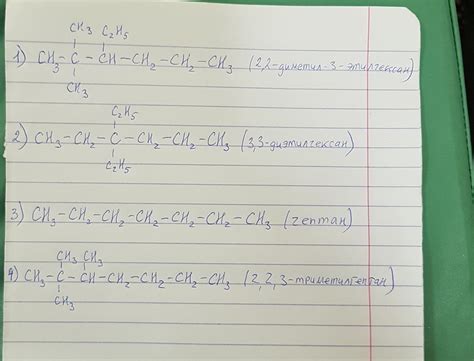 CH3 C2H5
1) CH3-C-CH-CH2-CH2-CH3 (2,2-диметил-3-этилгексан)
CH3
C2H5
2) CH3-CH2-C-CH2-CH2-CH3 (3,3-диэтилгексан)
C2H5
3) CH3-CH2-CH2-CH2-CH2-CH2-CH3 (гептан)
CH3 CH3
4) CH3-C-CH-CH2-CH2-CH2-CH3 (2,2,3-триметилгептан)
CH3